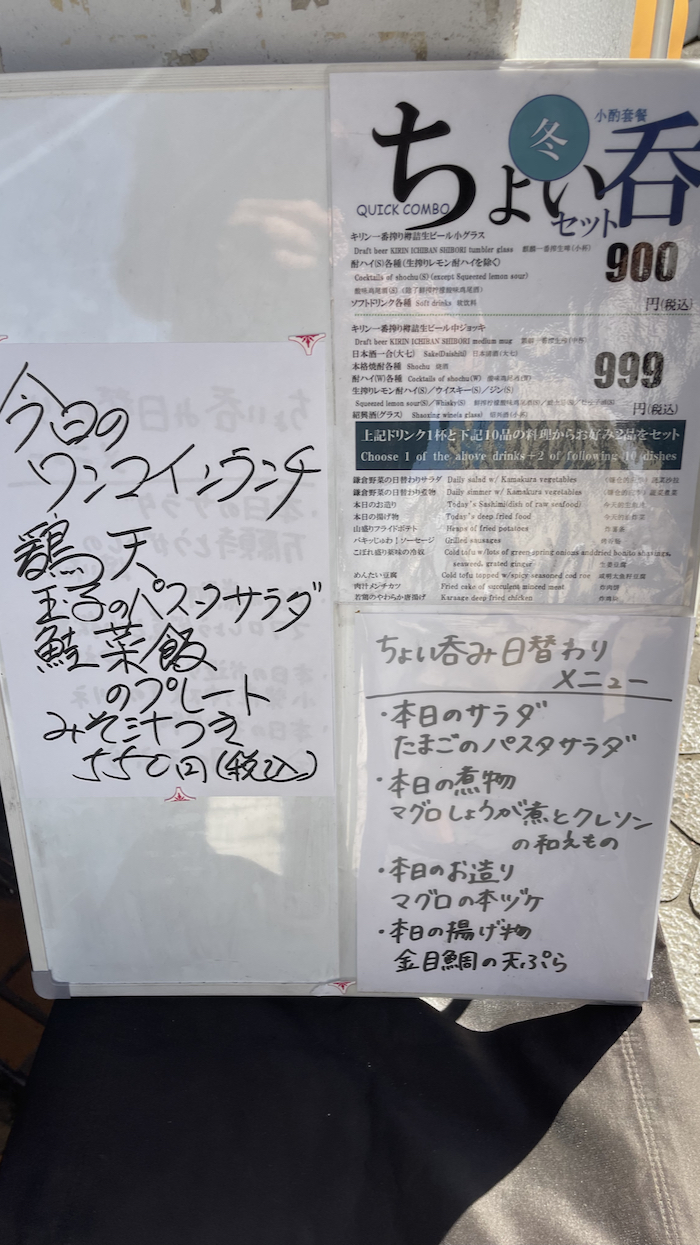 今日の
ワンコインランチ
鶏天
玉子のパスタサラダ
鮭菜飯
のプレート
みそ汁つき
550円(税込)
冬
小酌套餐
ちょい呑
QUICK COMBO
セット
キリン一番搾り樽詰生ビール小グラス
Draft beer KIRIN ICHIBAN SHIBORI tumbler glass
酎ハイ(S)各種(生搾りレモン酎ハイを除く)
Cocktails of shochu(S)(except Squeezed lemon sour)
ソフトドリンク各種 Soft drinks 軟飲料
900
円(税込)
キリン一番搾り樽詰生ビール中ジョッキ
Draft beer KIRIN ICHIBAN SHIBORI medium mug
日本酒一合(大七) Sake(Daishti) 日本清酒(大七)
本格焼酎各種 Shochu 焼酒
酎ハイ(W)各種 Cocktails of shochu(W)
生搾りレモン酎ハイ(S)/ウイスキー(S)/ジン(S)
Squeezed lemon sour(S)/Whisky(S)
紹興酒(グラス) Shaoxing wine(a glass)
999
円(税込)
上記ドリンク1杯と下記10品の料理からお好み2品をセット
Choose 1 of the above drinks+2 of following 10 dishes
鎌倉野菜の日替わりサラダ Daily salad w/ Kamakura vegetables
鎌倉野菜の日替わり煮物 Daily simmer w/ Kamakura vegetables
本日のお造り Today's Sashimi(dish of raw seafood)
本日の揚げ物 Today's deep fried food
山盛りフライドポテト Heaps of fried potatoes
パキッじゅわ!ソーセージ Grilled sausages
こぼれ盛り薬味の冷奴 Cold tofu w/lots of green spring onions and dried bonito shavings,
seaweed, grated ginger
めんたい豆腐 Cold tofu topped w/spicy seasoned cod roe
肉汁メンチカツ Fried cake of succulent minced meat
若鶏のやわらか唐揚げ Karaage deep fried chicken
ちょい呑み日替わり
メニュー
・本日のサラダ
たまごのパスタサラダ
・本日の煮物
マグロしょうが煮とクレソン
の和えもの
・本日のお造り
マグロの本ヅケ
・本日の揚げ物
金目鯛の天ぷら